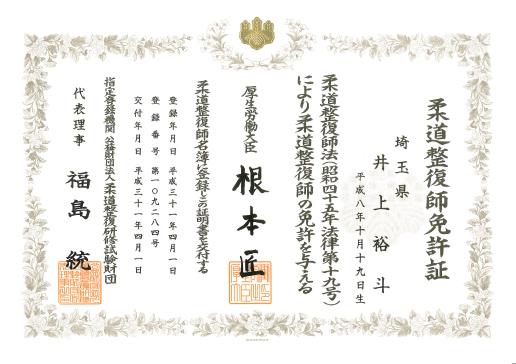 柔道整復師免許証
埼玉県
井上裕斗
平成八年十月十九日生
柔道整復師法(昭和四十五年法律第十九号)
により柔道整復師の免許を与える
厚生労働大臣 根本匠
柔道整復師名簿に登録しこの証明書を交付する
登録年月日 平成三十一年四月一日
登録番号 第一〇九二八四号
交付年月日 平成三十一年四月一日
指定登録機関 公益財団法人柔道整復研修試験財団
代表理事 福島統